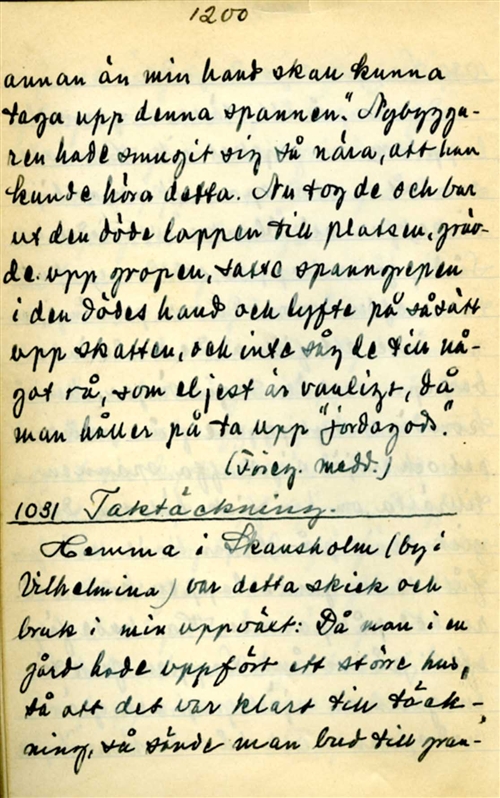 1200
annan än min hand skall kunna
taga upp denna spannen." Nybygga-
ren hade smugit sig så nära, att han
kunde höra detta. Nu tog de och bar
ut den döde lappen till platsen, gräv-
de upp gropen, satte spanngrepen
i den dödes hand och lyfte på såsätt
upp skatten, och inte såg de till nå-
got rå, som eljest är vanligt, då
man håller på ta upp "jordagods."
(Föreg. medd.)
1031 Taktäckning.
Hemma i Skansholm (by i
Vilhelmina) var detta skick och
bruk i min uppväxt: Då man i en
gård hade uppfört ett större hus,
så att det var klart till täck-
ning, så sände man bud till gran-